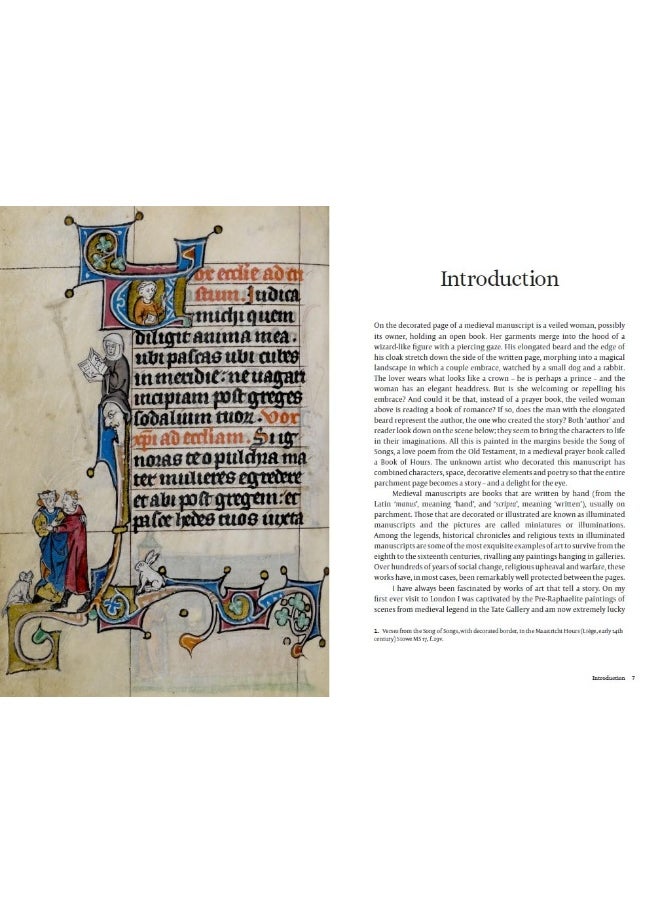 Vox ecclie ad cri
stum. Iudica
michi quem
diligit anima mea.
ubi pascas ubi cubes
in meridie: ne uagari
incipiam post greges
sodalium tuor. Vox
xpi ad eccliam. Si ig
noras te o pulchra in
ter mulieres egredere
et abi post gregem: et
pasce hedos tuos iuxta
Introduction
On the decorated page of a medieval manuscript is a veiled woman, possibly
its owner, holding an open book. Her garments merge into the hood of a
wizard-like figure with a piercing gaze. His elongated beard and the edge of
his cloak stretch down the side of the written page, morphing into a magical
landscape in which a couple embrace, watched by a small dog and a rabbit.
The lover wears what looks like a crown – he is perhaps a prince – and the
woman has an elegant headdress. But is she welcoming or repelling his
embrace? And could it be that, instead of a prayer book, the veiled woman
above is reading a book of romance? If so, does the man with the elongated
beard represent the author, the one who created the story? Both 'author' and
reader look down on the scene below; they seem to bring the characters to life
in their imaginations. All this is painted in the margins beside the Song of
Songs, a love poem from the Old Testament, in a medieval prayer book called
a Book of Hours. The unknown artist who decorated this manuscript has
combined characters, space, decorative elements and poetry so that the entire
parchment page becomes a story – and a delight for the eye.
Medieval manuscripts are books that are written by hand (from the
Latin 'manus', meaning 'hand', and 'scripta', meaning 'written'), usually on
parchment. Those that are decorated or illustrated are known as illuminated
manuscripts and the pictures are called miniatures or illuminations.
Among the legends, historical chronicles and religious texts in illuminated
manuscripts are some of the most exquisite examples of art to survive from the
eighth to the sixteenth centuries, rivalling any paintings hanging in galleries.
Over hundreds of years of social change, religious upheaval and warfare, these
works have, in most cases, been remarkably well protected between the pages.
I have always been fascinated by works of art that tell a story. On my
first ever visit to London I was captivated by the Pre-Raphaelite paintings of
scenes from medieval legend in the Tate Gallery and am now extremely lucky
1. Verses from the Song of Songs, with decorated border, in the Maastricht Hours (Liège, early 14th
century) Stowe MS 17, f.29v.
Introduction 7